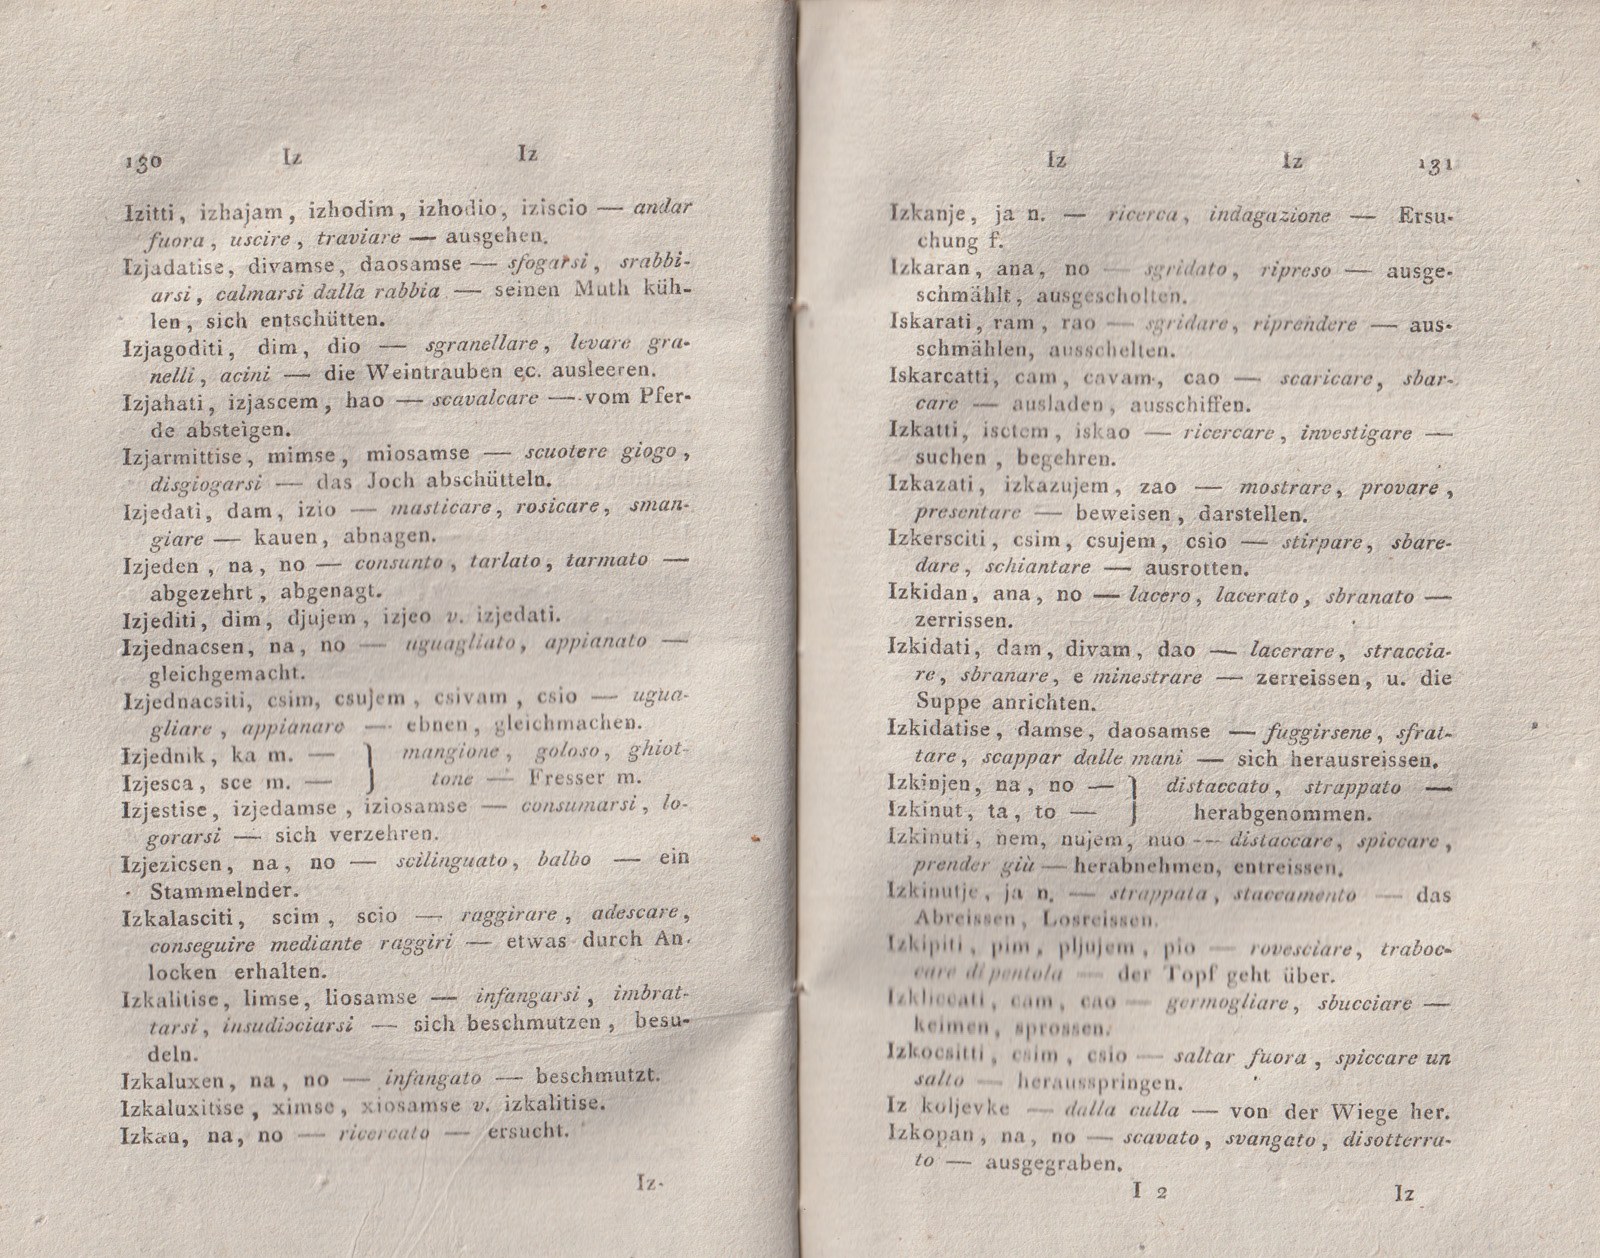 130 Iz Iz
Izitti, izhajam, izhodim, izhodio, iziscio — andar
fuora, uscire, traviare — ausgehen.
Izjadatise, divamse, daosamse — sfogarsi, srabbi-
arsi, calmarsi dalla rabbia — seinen Muth küh-
len, sich entschütten.
Izjagoditi, dim, dio — sgranellare, levare gra-
nelli, acini — die Weintrauben ec. ausleeren.
Izjahati, izjascem, hao — scavalcare — vom Pfer-
de absteigen.
Izjarmittise, mimse, miosamse — scuotere giogo,
disgiogarsi — das Joch abschütteln.
Izjedati, dam, izio — masticare, rosicare, sman-
giare — kauen, abnagen.
Izjeden, na, no — consunto, tarlato, tarmato —
abgezehrt, abgenagt.
Izjediti, dim, djujem, izjeo v. izjedati.
Izjednacsen, na, no — uguagliato, appianato —
gleichgemacht.
Izjednacsiti, csim, csujem, csivam, csio — ugua-
gliare, appianare — ebnen, gleichmachen.
Izjednik, ka m. — } mangione, goloso, ghiot-
Izjesca, sce m. — } tone — Fresser m.
Izjestise, izjedamse, iziosamse — consumarsi, lo-
gorarsi — sich verzehren.
Izjezicsen, na, no — scilinguato, balbo — ein
Stammelnder.
Izkalasciti, scim, scio — raggirare, adescare,
conseguire mediante raggiri — etwas durch An-
locken erhalten.
Izkalitise, limse, liosamse — infangarsi, imbrat-
tarsi, insudiciarsi — sich beschmutzen, besu-
deln.
Izkaluxen, na, no — infangato — beschmutzt.
Izkaluxitise, ximse, xiosamse v. izkalitise.
Izkan, na, no — ricercato — ersucht.
Iz-
Iz Iz 131
Izkanje, ja n. — ricerca, indagazione — Ersu-
chung f.
Izkaran, ana, no — sgridato, ripreso — ausge-
schmählt, ausgescholten.
Iskarati, ram, rao — sgridare, riprendere — aus-
schmählen, ausschelten.
Iskarcatti, cam, cavam, cao — scaricare, sbar-
care — ausladen, ausschiffen.
Izkatti, isctem, iskao — ricercare, investigare —
suchen, begehren.
Izkazati, izkazujem, zao — mostrare, provare,
presentare — beweisen, darstellen.
Izkersciti, csim, csujem, csio — stirpare, sbare-
dare, schiantare — ausrotten.
Izkidan, ana, no — lacero, lacerato, sbranato —
zerrissen.
Izkidati, dam, divam, dao — lacerare, straccia-
re, sbranare, e minestrare — zerreissen, u. die
Suppe anrichten.
Izkidatise, damse, daosamse — fuggirsene, sfrat-
tare, scappar dalle mani — sich herausreissen.
Izkinjen, na, no — } distaccato, strappato —
Izkinut, ta, to — } herabgenommen.
Izkinuti, nem, nujem, nuo — distaccare, spiccare,
prender giù — herabnehmen, entreissen.
Izkinutje, ja n. — strappata, staccamento — das
Abreissen, Losreissen.
Izkipiti, pim, pljujem, pio — rovesciare, traboc-
care di pentola — der Topf geht über.
Izkliccati, cam, cao — germogliare, sbucciare —
keimen, sprossen.
Izkocsitti, csim, csio — saltar fuora, spiccare un
salto — herausspringen.
Iz koljevke — dalla culla — von der Wiege her.
Izkopan, na, no — scavato, svangato, disotterra-
to — ausgegraben.
I 2 Iz